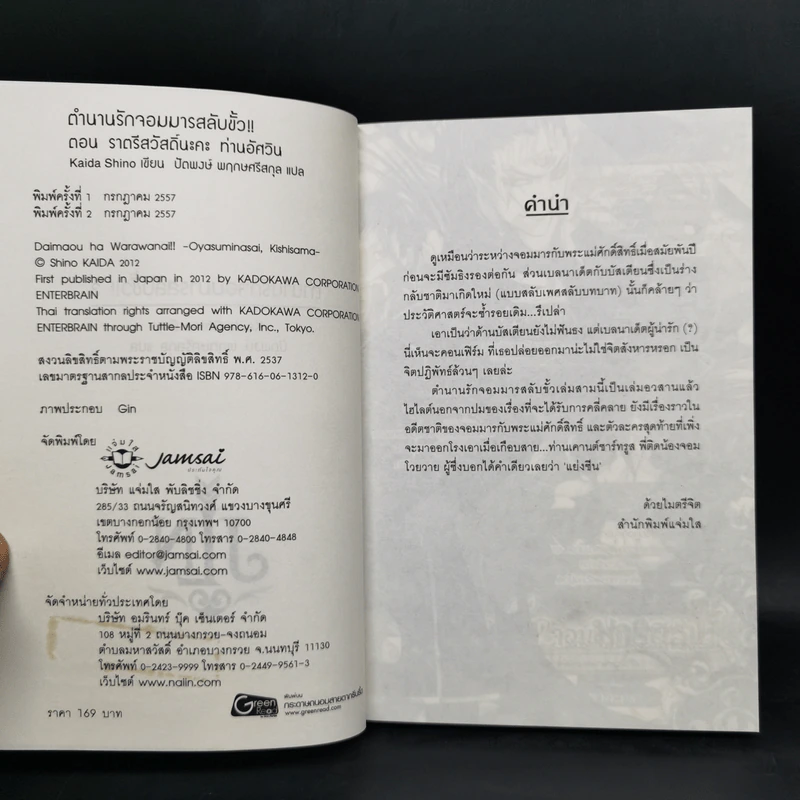 ตำนานรักจอมมารสลับขั้ว!!
ตอน ราตรีสวัสดิ์นะคะ ท่านอัศวิน
Kaida Shino เขียน ปัตพงษ์ พฤกษศรีสกุล แปล
พิมพ์ครั้งที่ 1 กรกฎาคม 2557
พิมพ์ครั้งที่ 2 กรกฎาคม 2557
Daimaou ha Warawanai!! -Oyasuminasai, Kishisama-
© Shino KAIDA 2012
First published in Japan in 2012 by KADOKAWA CORPORATION
ENTERBRAIN
Thai translation rights arranged with KADOKAWA CORPORATION
ENTERBRAIN through Tuttle-Mori Agency, Inc., Tokyo.
สงวนลิขสิทธิ์ตามพระราชบัญญัติลิขสิทธิ์ พ.ศ. 2537
เลขมาตรฐานสากลประจำหนังสือ ISBN 978-616-06-1312-0
ภาพประกอบ Gin
จัดพิมพ์โดย
แจ่มใส
Jamsai
Jamsai
บริษัท แจ่มใส พับลิชชิ่ง จำกัด
285/33 ถนนจรัญสนิทวงศ์ แขวงบางขุนศรี
เขตบางกอกน้อย กรุงเทพฯ 10700
โทรศัพท์ 0-2840-4800 โทรสาร 0-2840-4848
อีเมล editor@jamsai.com
เว็บไซต์ www.jamsai.com
จัดจำหน่ายทั่วประเทศโดย
บริษัท อมรินทร์ บุ๊ค เซ็นเตอร์ จำกัด
108 หมู่ที่ 2 ถนนบางกรวย-จงถนอม
ตำบลมหาสวัสดิ์ อำเภอบางกรวย จ.นนทบุรี 11130
โทรศัพท์ 0-2423-9999 โทรสาร 0-2449-9561-3
เว็บไซต์ www.naiin.com
Green Read
พิมพ์บน
กระดาษถนอมสายตากรีนรี้ด
www.greenread.com
ราคา 169 บาท
คำนำ
ดูเหมือนว่าระหว่างจอมมารกับพระแม่ศักดิ์สิทธิ์เมื่อสมัยพันปี
ก่อนจะมีซัมธิงรองต่อกัน ส่วนเบลนาเด็ตกับบัสเตียนซึ่งเป็นร่าง
กลับชาติมาเกิดใหม่ (แบบสลับเพศสลับบทบาท) นั้นก็คล้ายๆ ว่า
ประวัติศาสตร์จะซ้ำรอยเดิม...รึเปล่า
เอาเป็นว่าด้านบัสเตียนยังไม่ฟันธง แต่เบลนาเด็ตผู้น่ารัก (?)
นี่เห็นจะคอนเฟิร์ม ที่เธอปล่อยออกมาน่ะไม่ใช่จิตสังหารหรอก เป็น
จิตปฏิพัทธ์ล้วนๆ เลยล่ะ
ตำนานรักจอมมารสลับขั้วเล่มสามนี้เป็นเล่มอวสานแล้ว
ไฮไลต์นอกจากปมของเรื่องที่จะได้รับการคลี่คลาย ยังมีเรื่องราวใน
อดีตชาติของจอมมารกับพระแม่ศักดิ์สิทธิ์ และตัวละครสุดท้ายที่เพิ่ง
จะมาออกโรงเอาเมื่อเกือบสาย...ท่านเคานต์ซาร์ทรูส พี่ติดน้องจอม
โวยวาย ผู้ซึ่งบอกได้คำเดียวเลยว่า 'แย่งซีน'
ด้วยไมตรีจิต
สำนักพิมพ์แจ่มใส